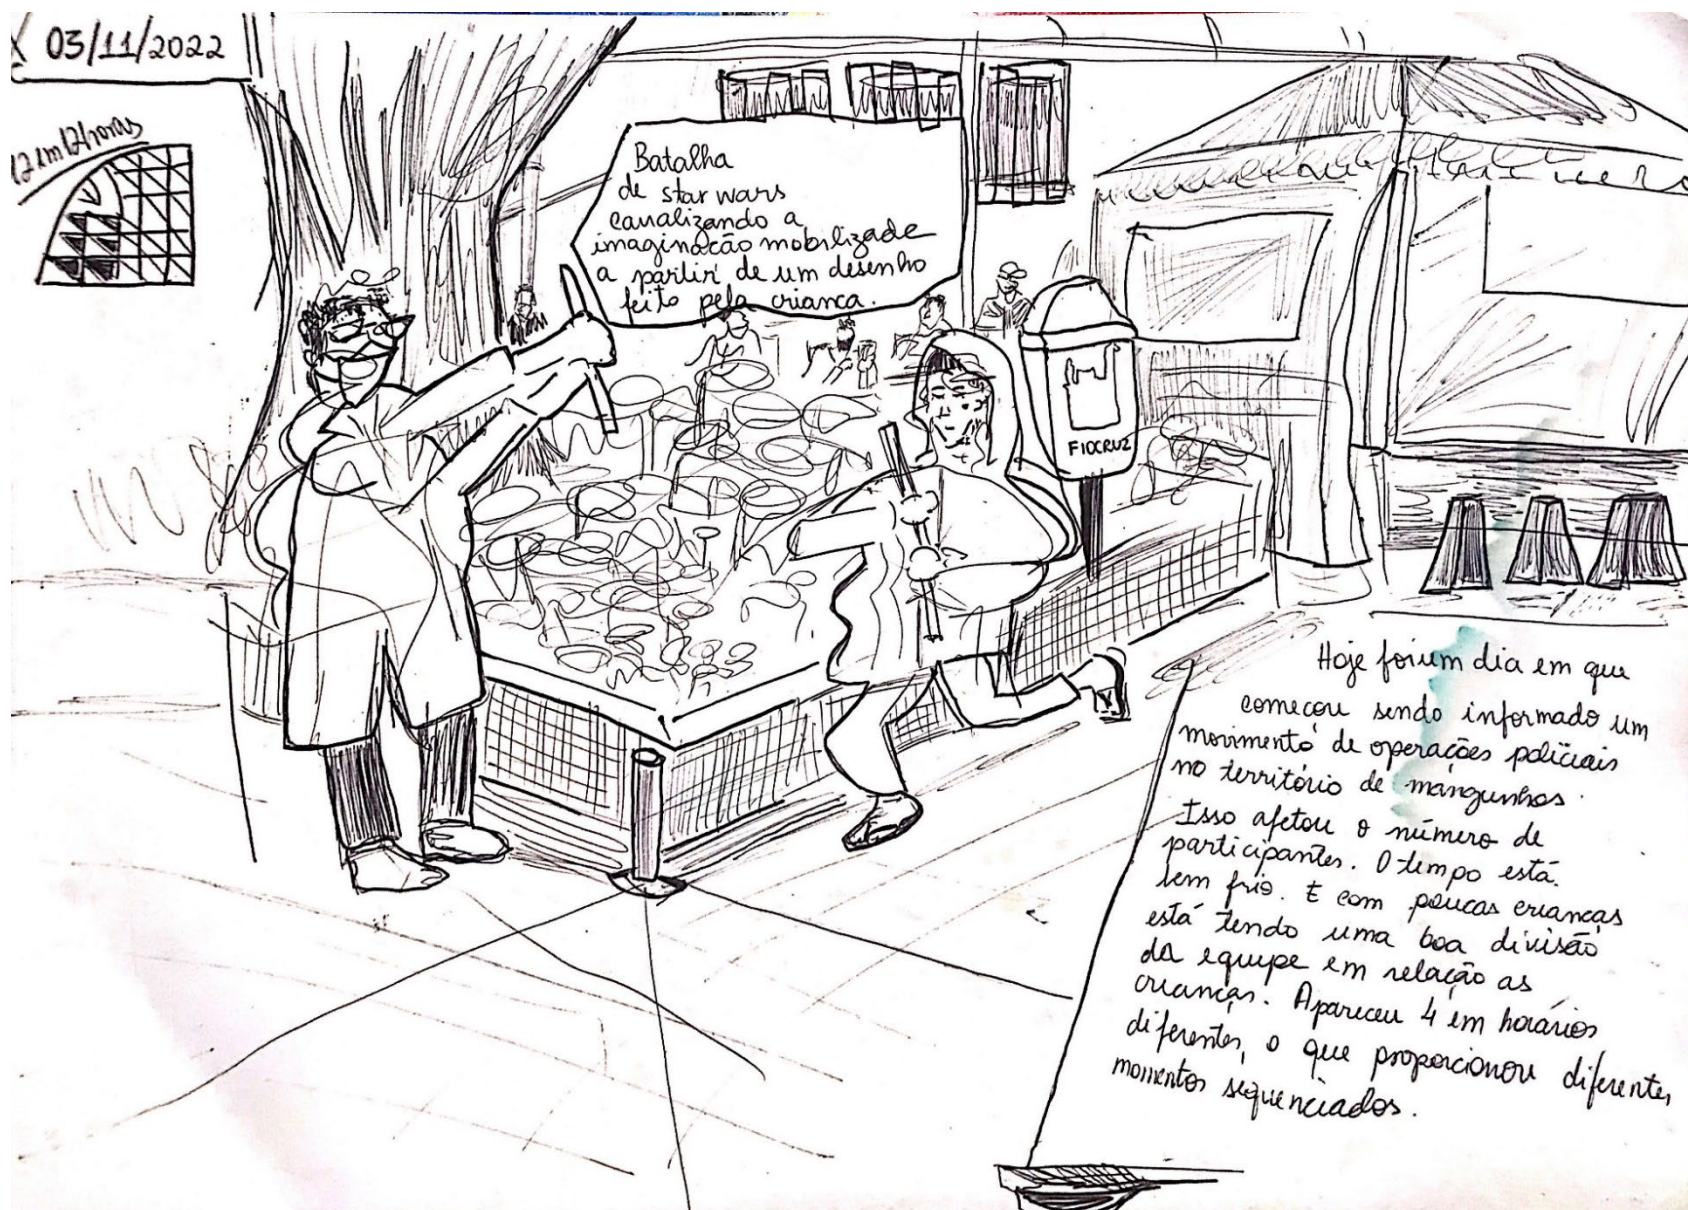 03/11/2022
12 em 12 horas
Batalha
de star wars
canalizando a
imaginacão mobilizade
a partir de um desenho
feito pela crianca.
FIOCRUZ
Hoje foi um dia em que
começou sendo informado um
movimento de operações policiais
no território de manguinhos.
Isso afetou o número de
participantes. O tempo está
bem frio. E com poucas crianças
está tendo uma boa divisão
da equipe em relação as
crianças. Apareceu 4 em horários
diferentes, o que proporcionou diferentes
momentos sequenciados.